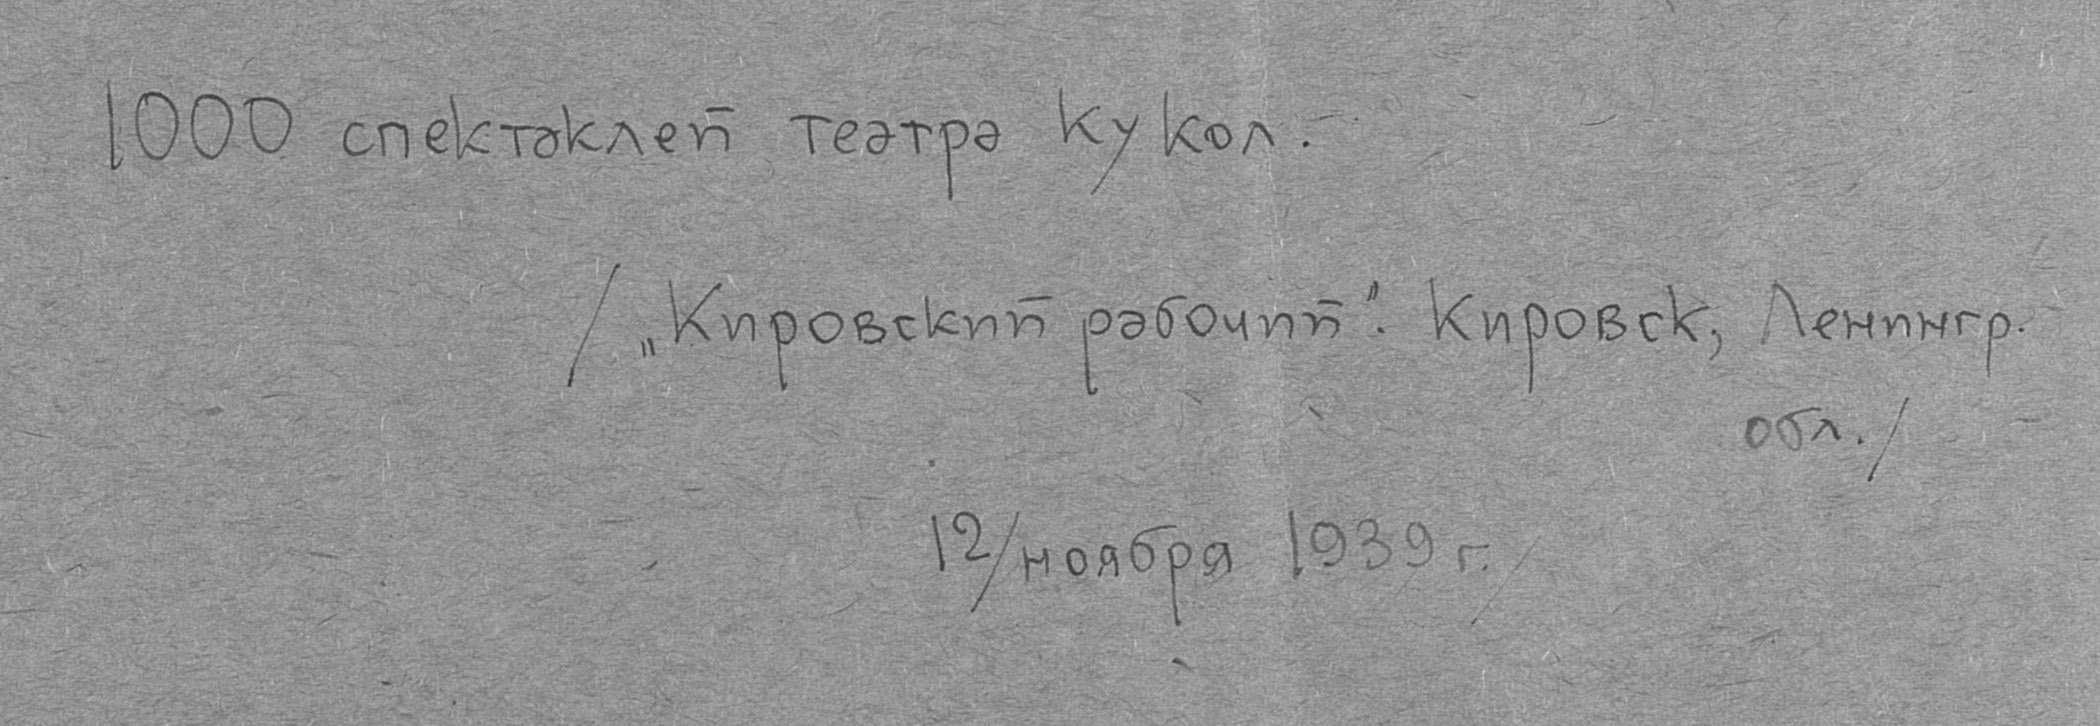 1000 спектаклей театра кукол.
/„Кировский рабочий". Кировск, Ленингр.
обл./
12/ноября 1939 г./